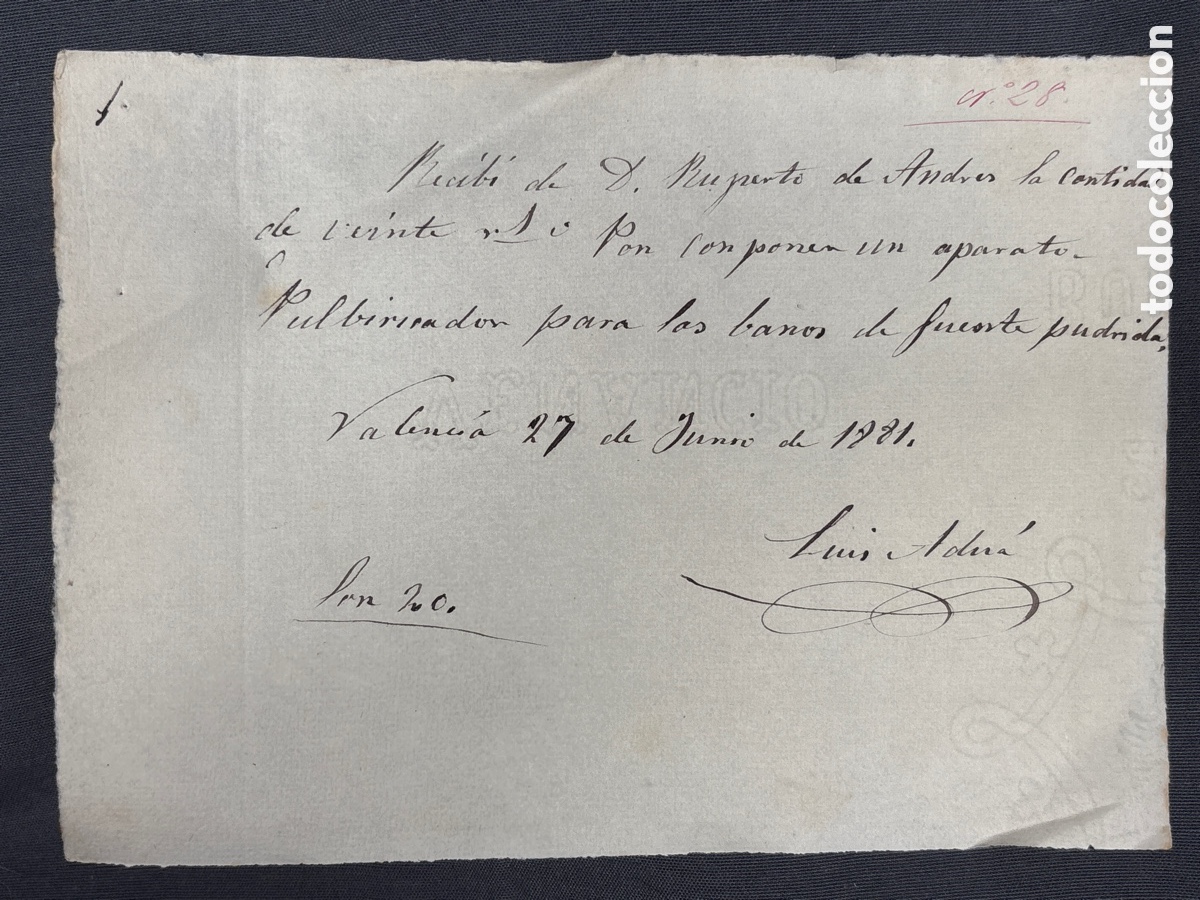 nº 28.
Recibi de D. Ruperto de Andres la contida
de veinte rl v Pon conponen un aparato
Pulbiricador para los banos de fuente pudrida,
Valencia 27 de Junio de 1881.
Luis Aduá
Son 20.
todocoleccion